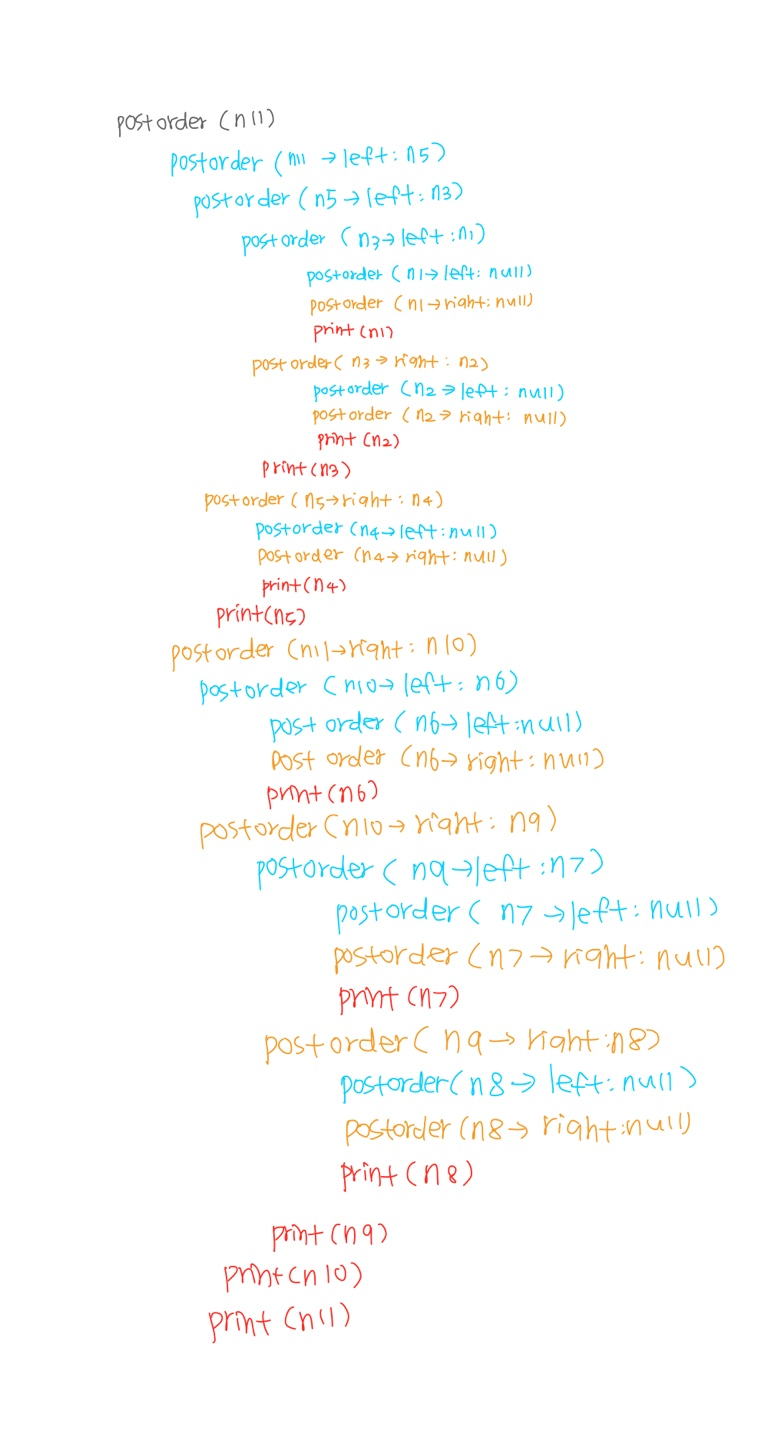 postorder (n11)
postorder (n11 → left : n5)
postorder (n5 → left : n3)
postorder (n3 → left : n1)
postorder (n1 → left : null)
postorder (n1 → right : null)
print (n1)
postorder (n3 → right : n2)
postorder (n2 → left : null)
postorder (n2 → right : null)
print (n2)
print (n3)
postorder (n5 → right : n4)
postorder (n4 → left : null)
postorder (n4 → right : null)
print (n4)
print (n5)
postorder (n11 → right : n10)
postorder (n10 → left : n6)
postorder (n6 → left : null)
postorder (n6 → right : null)
print (n6)
postorder (n10 → right : n9)
postorder (n9 → left : n7)
postorder (n7 → left : null)
postorder (n7 → right : null)
print (n7)
postorder (n9 → right : n8)
postorder (n8 → left : null)
postorder (n8 → right : null)
print (n8)
print (n9)
print (n10)
print (n11)